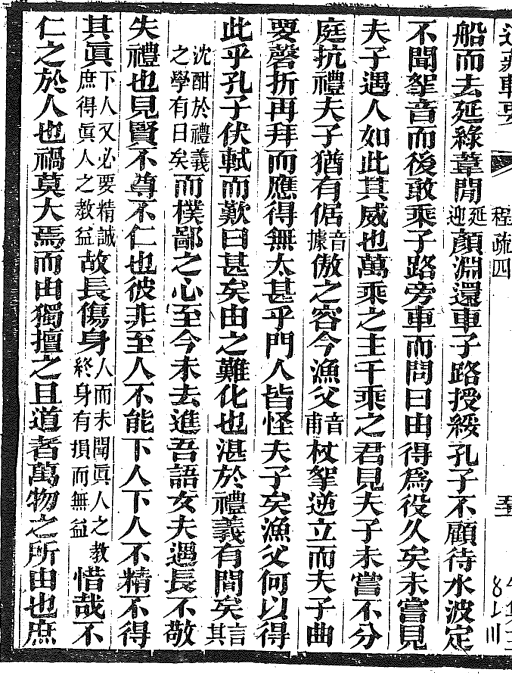 程疏四
船而去延緣葦閒延迎顏淵還車子路授綏孔子不顧待水波定
不聞挐音而後敢乘子路旁車而問曰由得爲役久矣未嘗見
夫子遇人如此其威也萬乘之主千乘之君見夫子未嘗不分
庭抗禮夫子猶有倨音據傲之容今漁父音甫杖挐逆立而夫子曲
要磬折再拜而應得無太甚乎門人皆怪夫子矣漁父何以得
此乎孔子伏軾而歎曰甚矣由之難化也湛於禮義有閒矣言其
沈酣於禮義之學有日矣而樸鄙之心至今未去進吾語女夫遇長不敬
失禮也見賢不尊不仁也彼非至人不能下人下人不精不得
其眞下人又必要精誠庶得眞人之教益故長傷身人而未聞眞人之教終身有損而無益惜哉不
仁之於人也禍莫大焉而由獨擅之且道者萬物之所由也庶